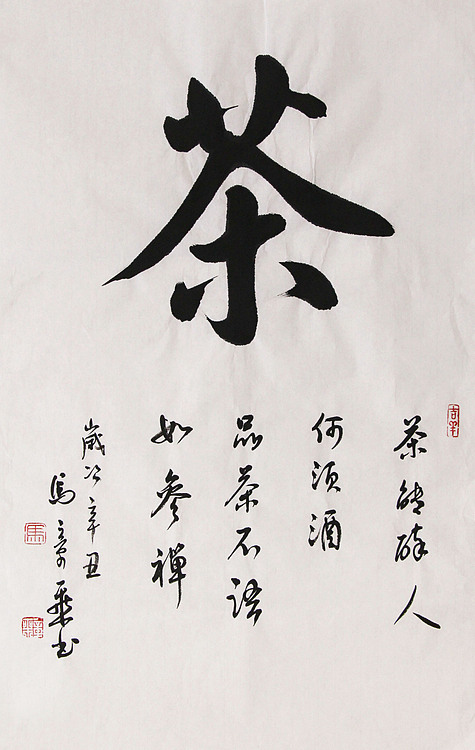 茶
茶能醉人
何須酒
品茶不語
如參禪
歲次辛丑
馬
书